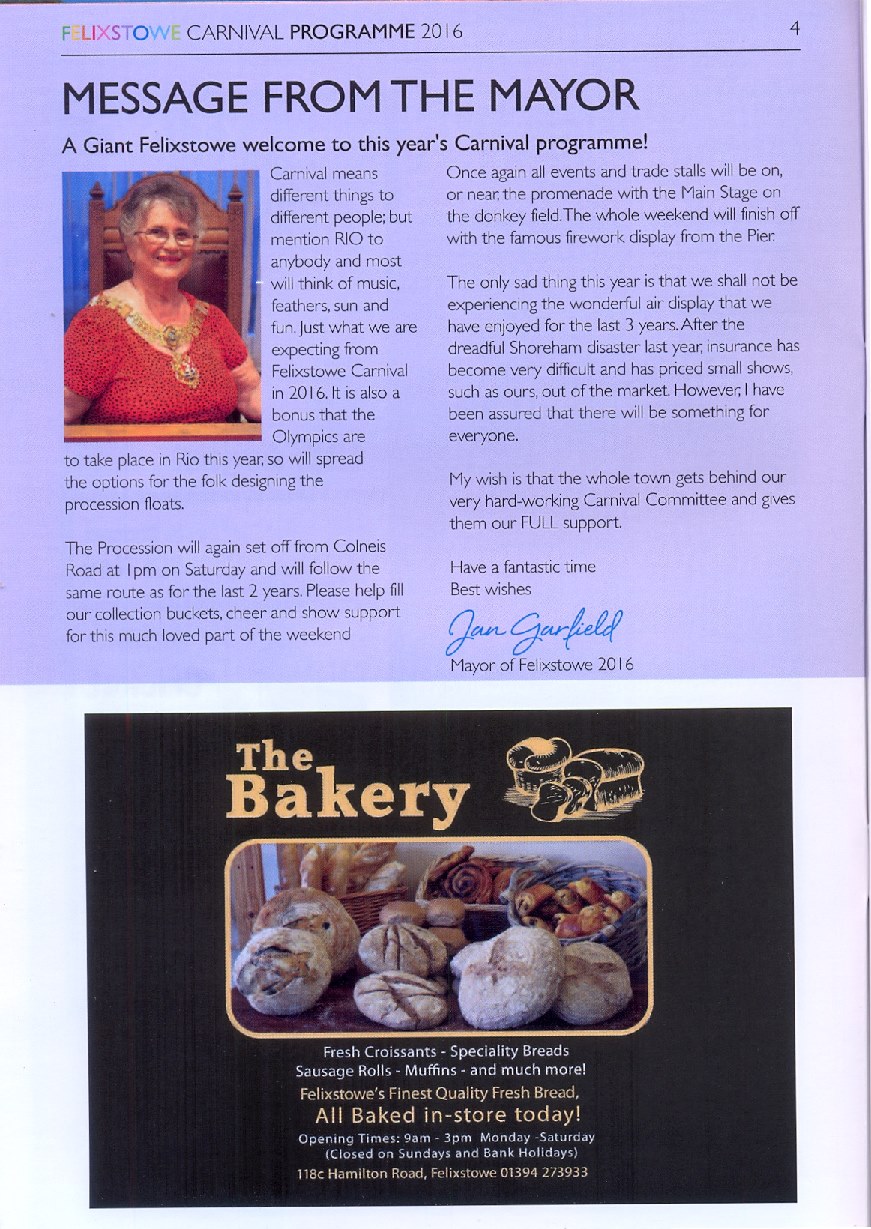 FELIXSTOWE CARNIVAL PROGRAMME 2016
4
MESSAGE FROM THE MAYOR
A Giant Felixstowe welcome to this year's Carnival programme!
Carnival means
different things to
different people; but
mention RIO to
anybody and most
will think of music,
feathers, sun and
fun. Just what we are
expecting from
Felixstowe Carnival
in 2016. It is also a
bonus that the
Olympics are
to take place in Rio this year, so will spread
the options for the folk designing the
procession floats.
The Procession will again set off from Colneis
Road at 1pm on Saturday and will follow the
same route as for the last 2 years. Please help fill
our collection buckets, cheer and show support
for this much loved part of the weekend
Once again all events and trade stalls will be on,
or near, the promenade with the Main Stage on
the donkey field. The whole weekend will finish off
with the famous firework display from the Pier.
The only sad thing this year is that we shall not be
experiencing the wonderful air display that we
have enjoyed for the last 3 years. After the
dreadful Shoreham disaster last year, insurance has
become very difficult and has priced small shows,
such as ours, out of the market. However, I have
been assured that there will be something for
everyone.
My wish is that the whole town gets behind our
very hard-working Carnival Committee and gives
them our FULL support.
Have a fantastic time
Best wishes
Jan Garfield
Mayor of Felixstowe 2016
The
Bakery
Fresh Croissants - Speciality Breads
Sausage Rolls - Muffins - and much more!
Felixstowe's Finest Quality Fresh Bread,
All Baked in-store today!
Opening Times: 9am - 3pm Monday -Saturday
(Closed on Sundays and Bank Holidays)
118c Hamilton Road, Felixstowe 01394 273933